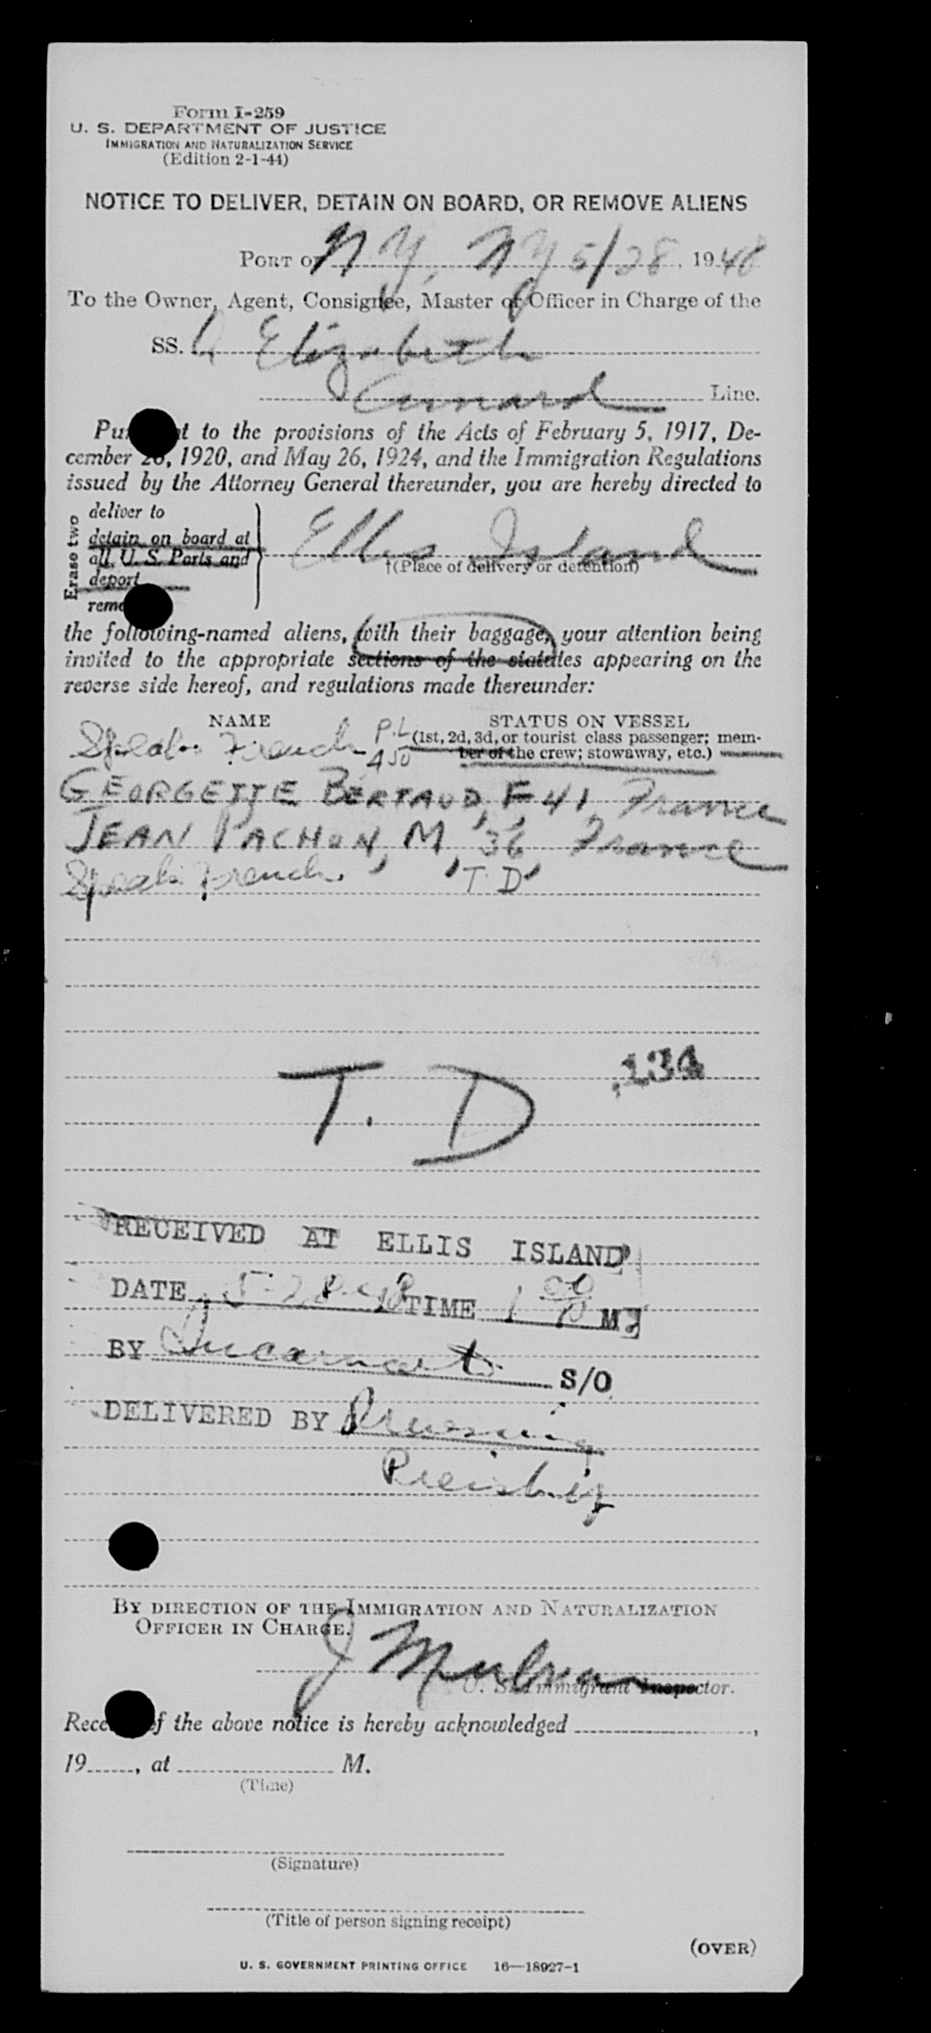 Form I-259
U. S. DEPARTMENT OF JUSTICE
IMMIGRATION AND NATURALIZATION SERVICE
(Edition 2-1-44)
NOTICE TO DELIVER, DETAIN ON BOARD, OR REMOVE ALIENS
PORT OF N Y, N Y 5/28, 1948
To the Owner, Agent, Consignee, Master or Officer in Charge of the
SS. Q Elizabeth
Cunard Line.
to the provisions of the Acts of February 5, 1917, De-
cember 26, 1920, and May 26, 1924, and the Immigration Regulations
issued by the Attorney General thereunder, you are hereby directed to
Erase two
deliver to
detain on board at
all U. S. Ports and
deport
Ellis Island
†(Place of delivery or detention)
the following-named aliens, with their baggage, your attention being
invited to the appropriate sections of the statutes appearing on the
reverse side hereof, and regulations made thereunder:
NAME STATUS ON VESSEL
Speaks French P.L 450 (1st, 2d, 3d, or tourist class passenger; mem-
ber of the crew; stowaway, etc.)
GEORGETTE BERTAUD, F, 41, France
JEAN PACHON, M, 36, France
Speaks French. T. D
T. D 134
RECEIVED AT ELLIS ISLAND
DATE 5-28-48 TIME 1 00 P M.
BY S/O
DELIVERED BY
BY DIRECTION OF THE IMMIGRATION AND NATURALIZATION
OFFICER IN CHARGE.
J
U. S. Immigrant Inspector.
of the above notice is hereby acknowledged ,
19 , at M.
(Time)
(Signature)
(Title of person signing receipt)
(OVER)
U. S. GOVERNMENT PRINTING OFFICE 16—18927-1